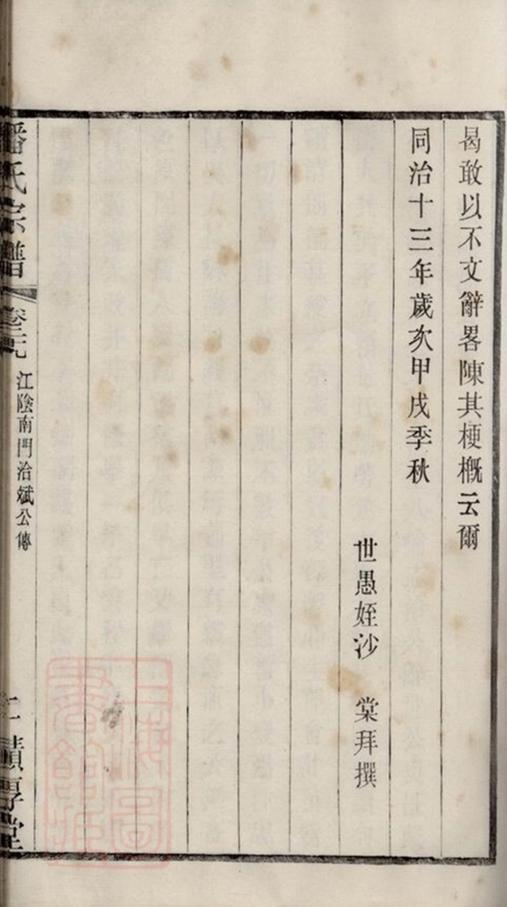 曷敢以不文辭畧陳其梗概云爾
同治十三年歲次甲戌季秋
世愚姪沙棠拜撰
潘氏宗譜
江陰南門治斌公傳
積厚堂